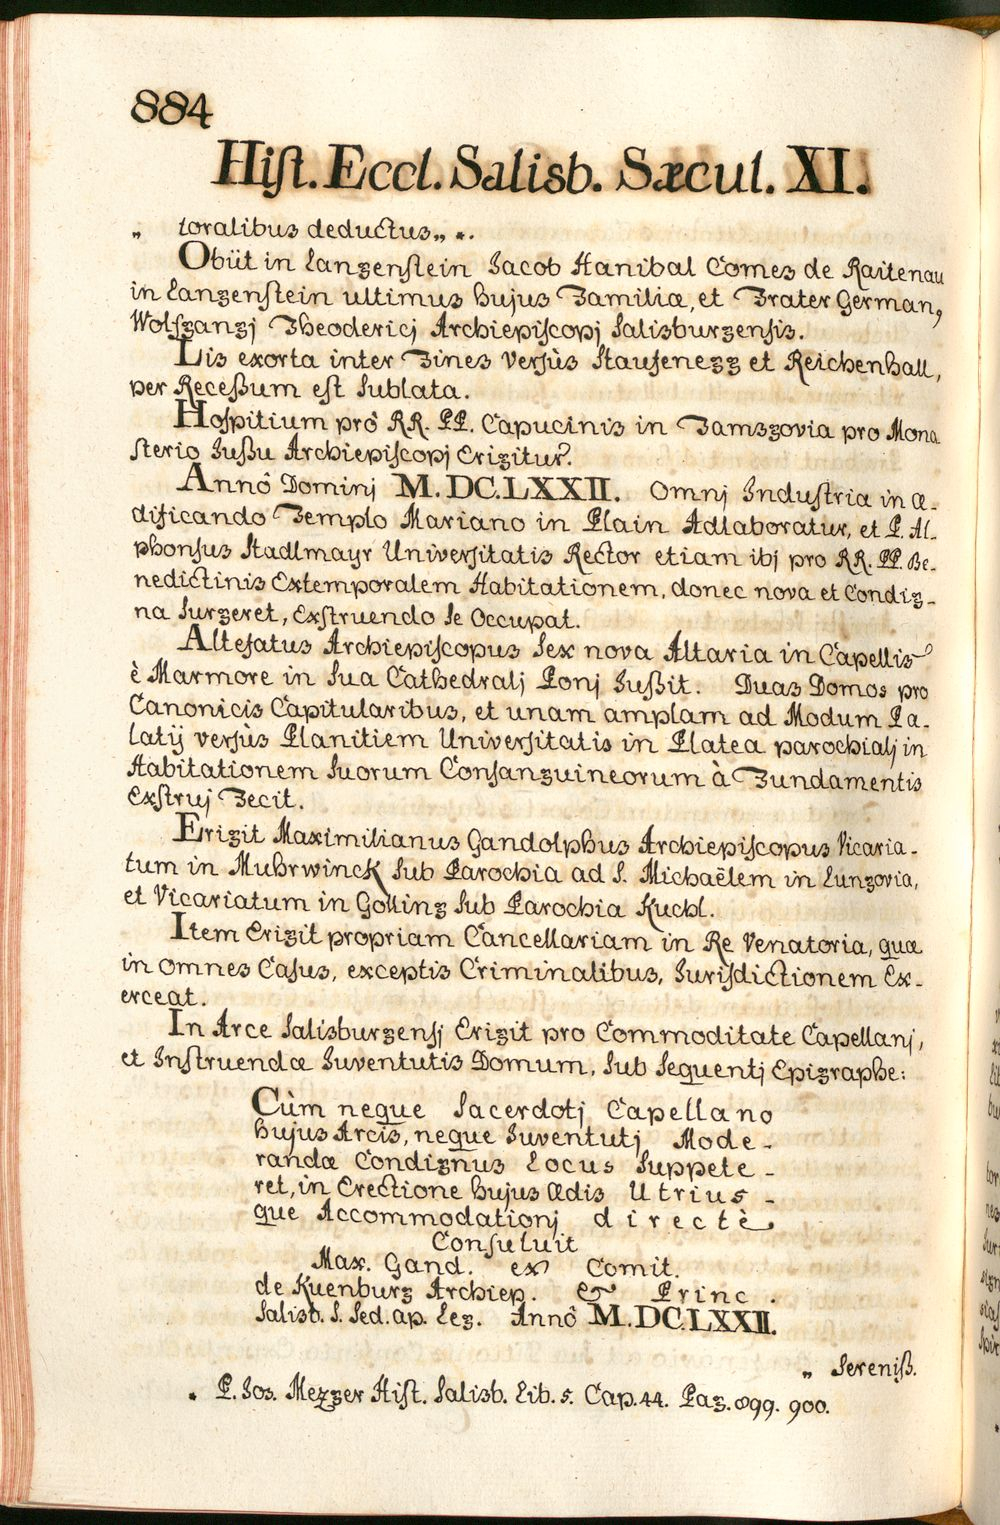 884
Hiſt. Eccl. Salisb. Sæcul. XI.
„ toralibus deductus„ *.
Obiit in Langenſtein Jacob Hanibal Comes de Raitenau
in Langenſtein ultimus hujus Familiæ, et Frater German,
Wolfgangj Theodericj Archiepiſcopj Salisburgenſis.
Lis exorta inter Fines verſùs Staufenegg et Reichenhall,
per Receßum eſt Sublata.
Hoſpitium prô RR. PP. Capucinis in Tamsgovia pro Mona
ſterio Jußu Archiepiſcopj Erigitur.
Annô Dominj M.DC.LXXII. Omnj Induſtria in æ-
dificando Templo Mariano in Plain Adlaboratur, et P. Al-
phonſus Stadlmayr Univerſitatis Rector etiam ibj pro RR. PP. Be-
nedictinis Extemporalem Habitationem, donec nova et Condig-
na Surgeret, Exſtruendo Se Occupat.
Altefatus Archiepiſcopus Sex nova Altaria in Capellis
è Marmore in Sua Cathedralj Ponj Jußit. Duas Domos pro
Canonicis Capitularibus, et unam amplam ad Modum Pa-
latij verſùs Planitiem Univerſitatis in Platea parochialj in
Habitationem Suorum Conſanguineorum à Fundamentis
Exſtruj Fecit.
Erigit Maximilianus Gandolphus Archiepiſcopus Vicaria-
tum in Muhrwinck Sub Parochia ad S. Michaëlem in Lungovia,
et Vicariatum in Golling Sub Parochia Kuchl.
Item Erigit propriam Cancellariam in Re Venatoria, quæ
in omnes Caſus, exceptis Criminalibus, Jurisdictionem Ex-
erceat.
In Arce Salisburgenſj Erigit pro Commoditate Capellanj,
et Inſtruendæ Juventutis Domum, Sub Sequentj Epigraphe:
Cùm neque Sacerdotj Capellano
hujus Arcis, neque Juventutj Mode-
randæ Condignus Locus Suppete-
ret, in Erectione hujus Ædis Utrius-
que Accommodationj directè
Conſuluit
Max. Gand. ex Comit.
de Kuenburg Archiep. & Princ.
Salisb. S. Sed. ap. Leg. Annô M.DC.LXXII.
„ Sereniß.
* P. Jos. Mezger Hiſt. Salisb. Lib. 5. Cap. 44. Pag. 899. 900.